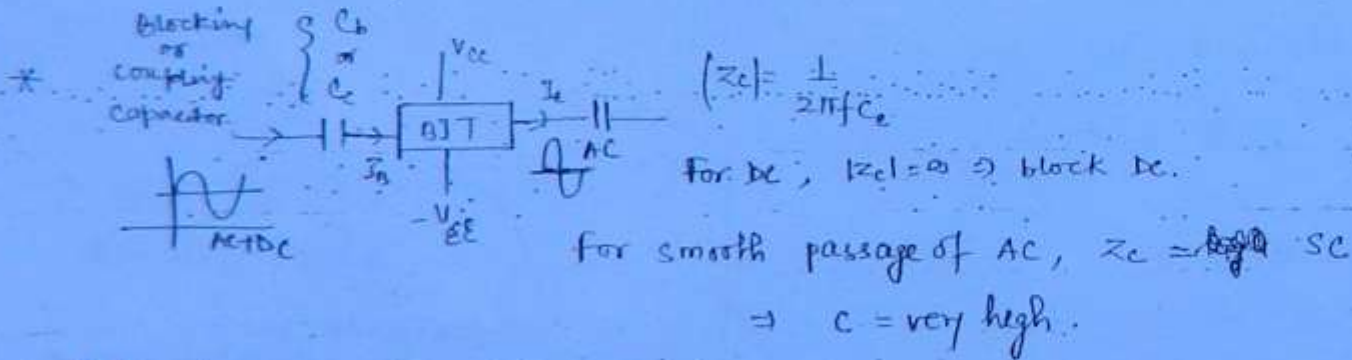 Blocking
or
* coupling
capacitor
C_b
or
C_c
V_CC
BJT
I_B
I_c
-V_EE
AC
AC+DC
|Z_c| = 1 / 2πfC_c
For DC, |Z_c| = ∞ ⇒ block DC.
for smooth passage of AC, Z_c = SC
⇒ C = very high.